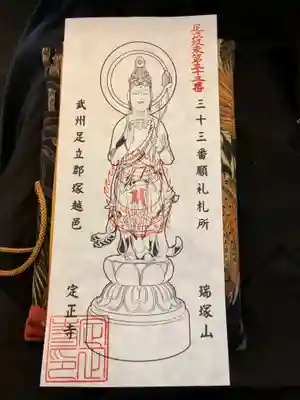 足立坂東第三十三番
三十三番順礼札所
瑞塚山
武州足立郡塚越邑
定正寺